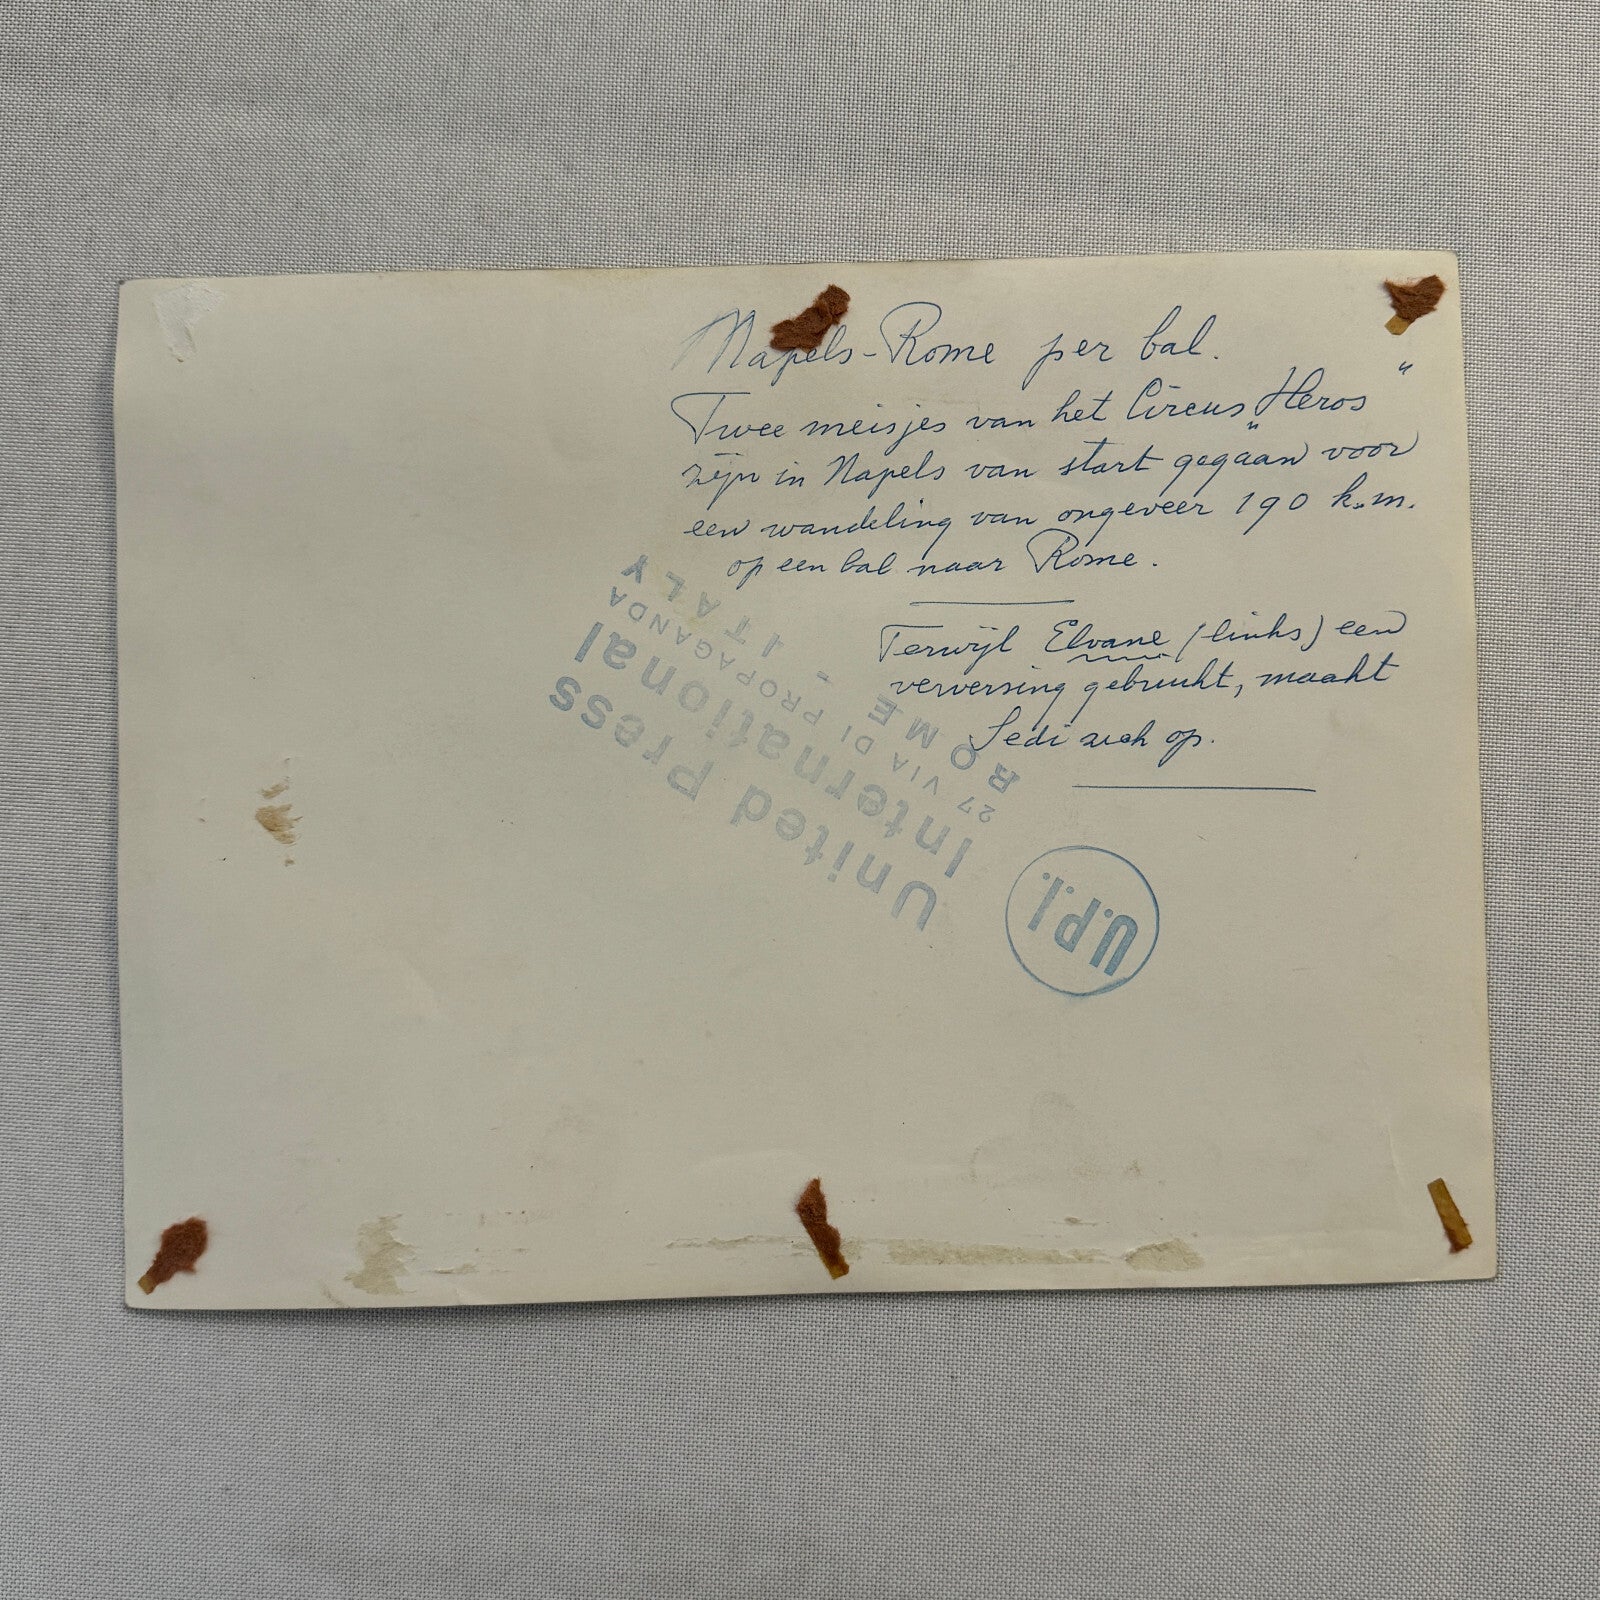 Napels-Rome per bal.
Twee meisjes van het Circus „Heros”
zijn in Napels van start gegaan voor
een wandeling van ongeveer 190 k.m.
op een bal naar Rome.
Terwijl Elvane (links) een
verversing gebruikt, maakt
Sedi zich op.
United Press
International
27 VIA DI PROPAGANDA
ROME - ITALY
U.P.I.